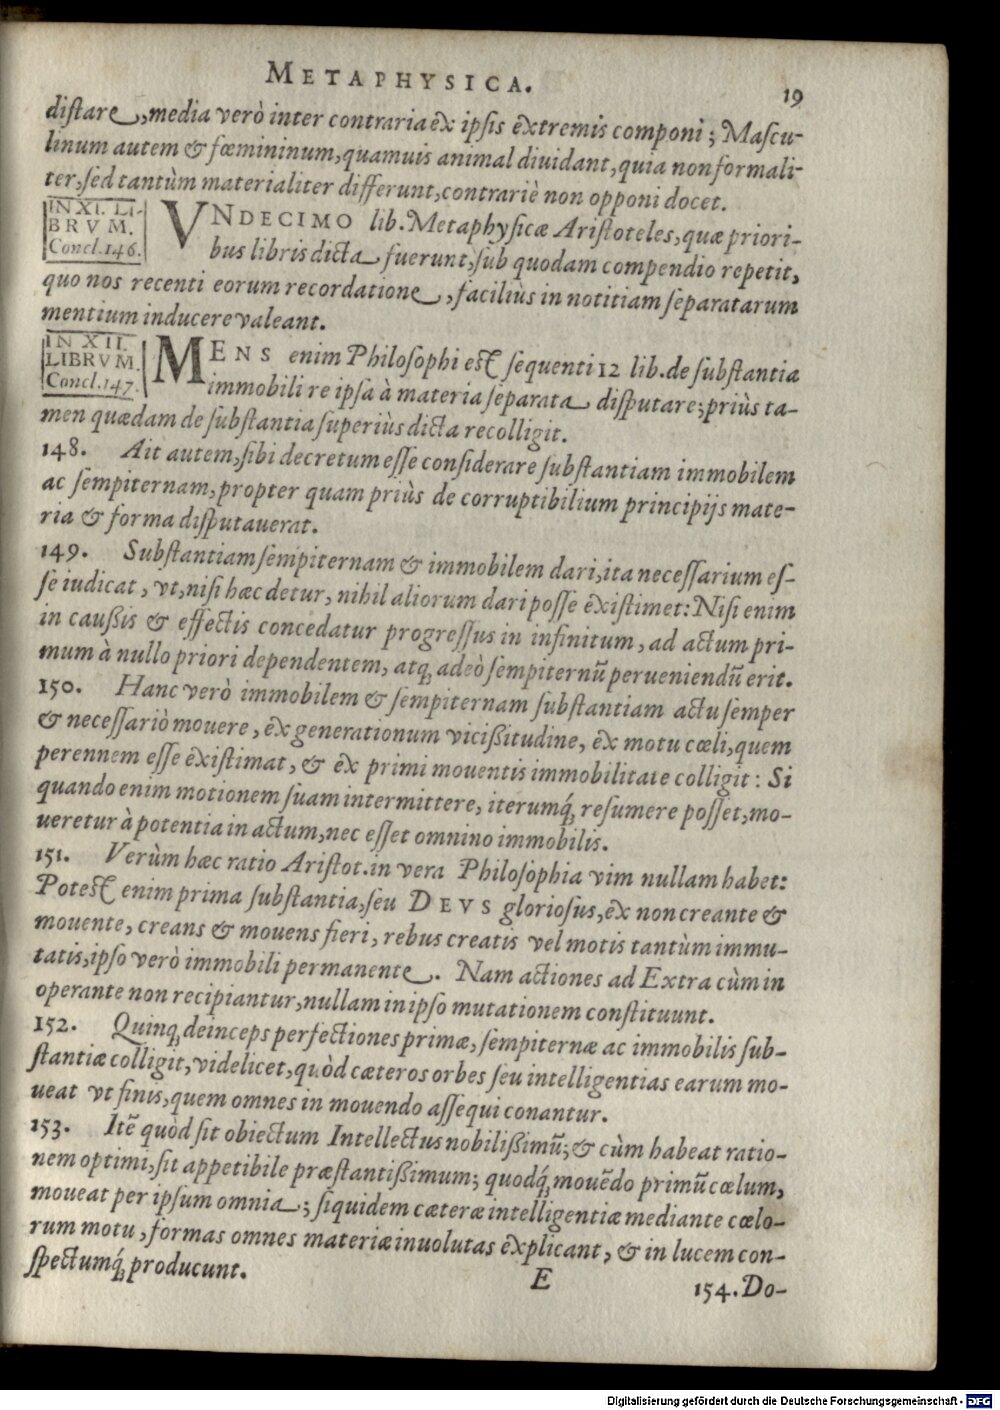 METAPHYSICA.
19
distare, media verò inter contraria ex ipsis extremis componi; Mascu-
linum autem & fœmininum, quamuis animal diuidant, quia non formali-
ter, sed tantùm materialiter differunt, contrariè non opponi docet.
IN XI. LI-
BRVM.
Concl. 146.
VNDECIMO lib. Metaphysicæ Aristoteles, quæ priori-
bus libris dicta fuerunt, sub quodam compendio repetit,
quo nos recenti eorum recordatione, faciliùs in notitiam separatarum
mentium inducere valeant.
IN XII.
LIBRVM.
Concl. 147.
MENS enim Philosophi est sequenti 12 lib. de substantia
immobili re ipsa à materia separata disputare; priùs ta-
men quædam de substantia superiùs dicta recolligit.
148. Ait autem, sibi decretum esse considerare substantiam immobilem
ac sempiternam, propter quam priùs de corruptibilium principijs mate-
ria & forma disputauerat.
149. Substantiam sempiternam & immobilem dari, ita necessarium es-
se iudicat, vt, nisi hæc detur, nihil aliorum dari posse existimet: Nisi enim
in caußis & effectis concedatur progressus in infinitum, ad actum pri-
mum à nullo priori dependentem, atq; adeò sempiternũ perueniendũ erit.
150. Hanc verò immobilem & sempiternam substantiam actu semper
& necessariò mouere, ex generationum vicißitudine, ex motu cœli, quem
perennem esse existimat, & ex primi mouentis immobilitate colligit: Si
quando enim motionem suam intermittere, iterumq́; resumere posset, mo-
ueretur à potentia in actum, nec esset omnino immobilis.
151. Verùm hæc ratio Aristot. in vera Philosophia vim nullam habet:
Potest enim prima substantia, seu DEVS gloriosus, ex non creante &
mouente, creans & mouens fieri, rebus creatis vel motis tantùm immu-
tatis, ipso verò immobili permanente. Nam actiones ad Extra cùm in
operante non recipiantur, nullam in ipso mutationem constituunt.
152. Quinq; deinceps perfectiones primæ, sempiternæ ac immobilis sub-
stantiæ colligit, videlicet, quòd cæteros orbes seu intelligentias earum mo-
ueat vt finis, quem omnes in mouendo assequi conantur.
153. Itẽ quòd sit obiectum Intellectus nobilißimũ; & cùm habeat ratio-
nem optimi, sit appetibile præstantißimum; quodq́; mouẽdo primũ cœlum,
moueat per ipsum omnia; siquidem cæteræ intelligentiæ mediante cœlo-
rum motu, formas omnes materiæ inuolutas explicant, & in lucem con-
spectumq́; producunt.
E
154. Do-
Digitalisierung gefördert durch die Deutsche Forschungsgemeinschaft - DFG